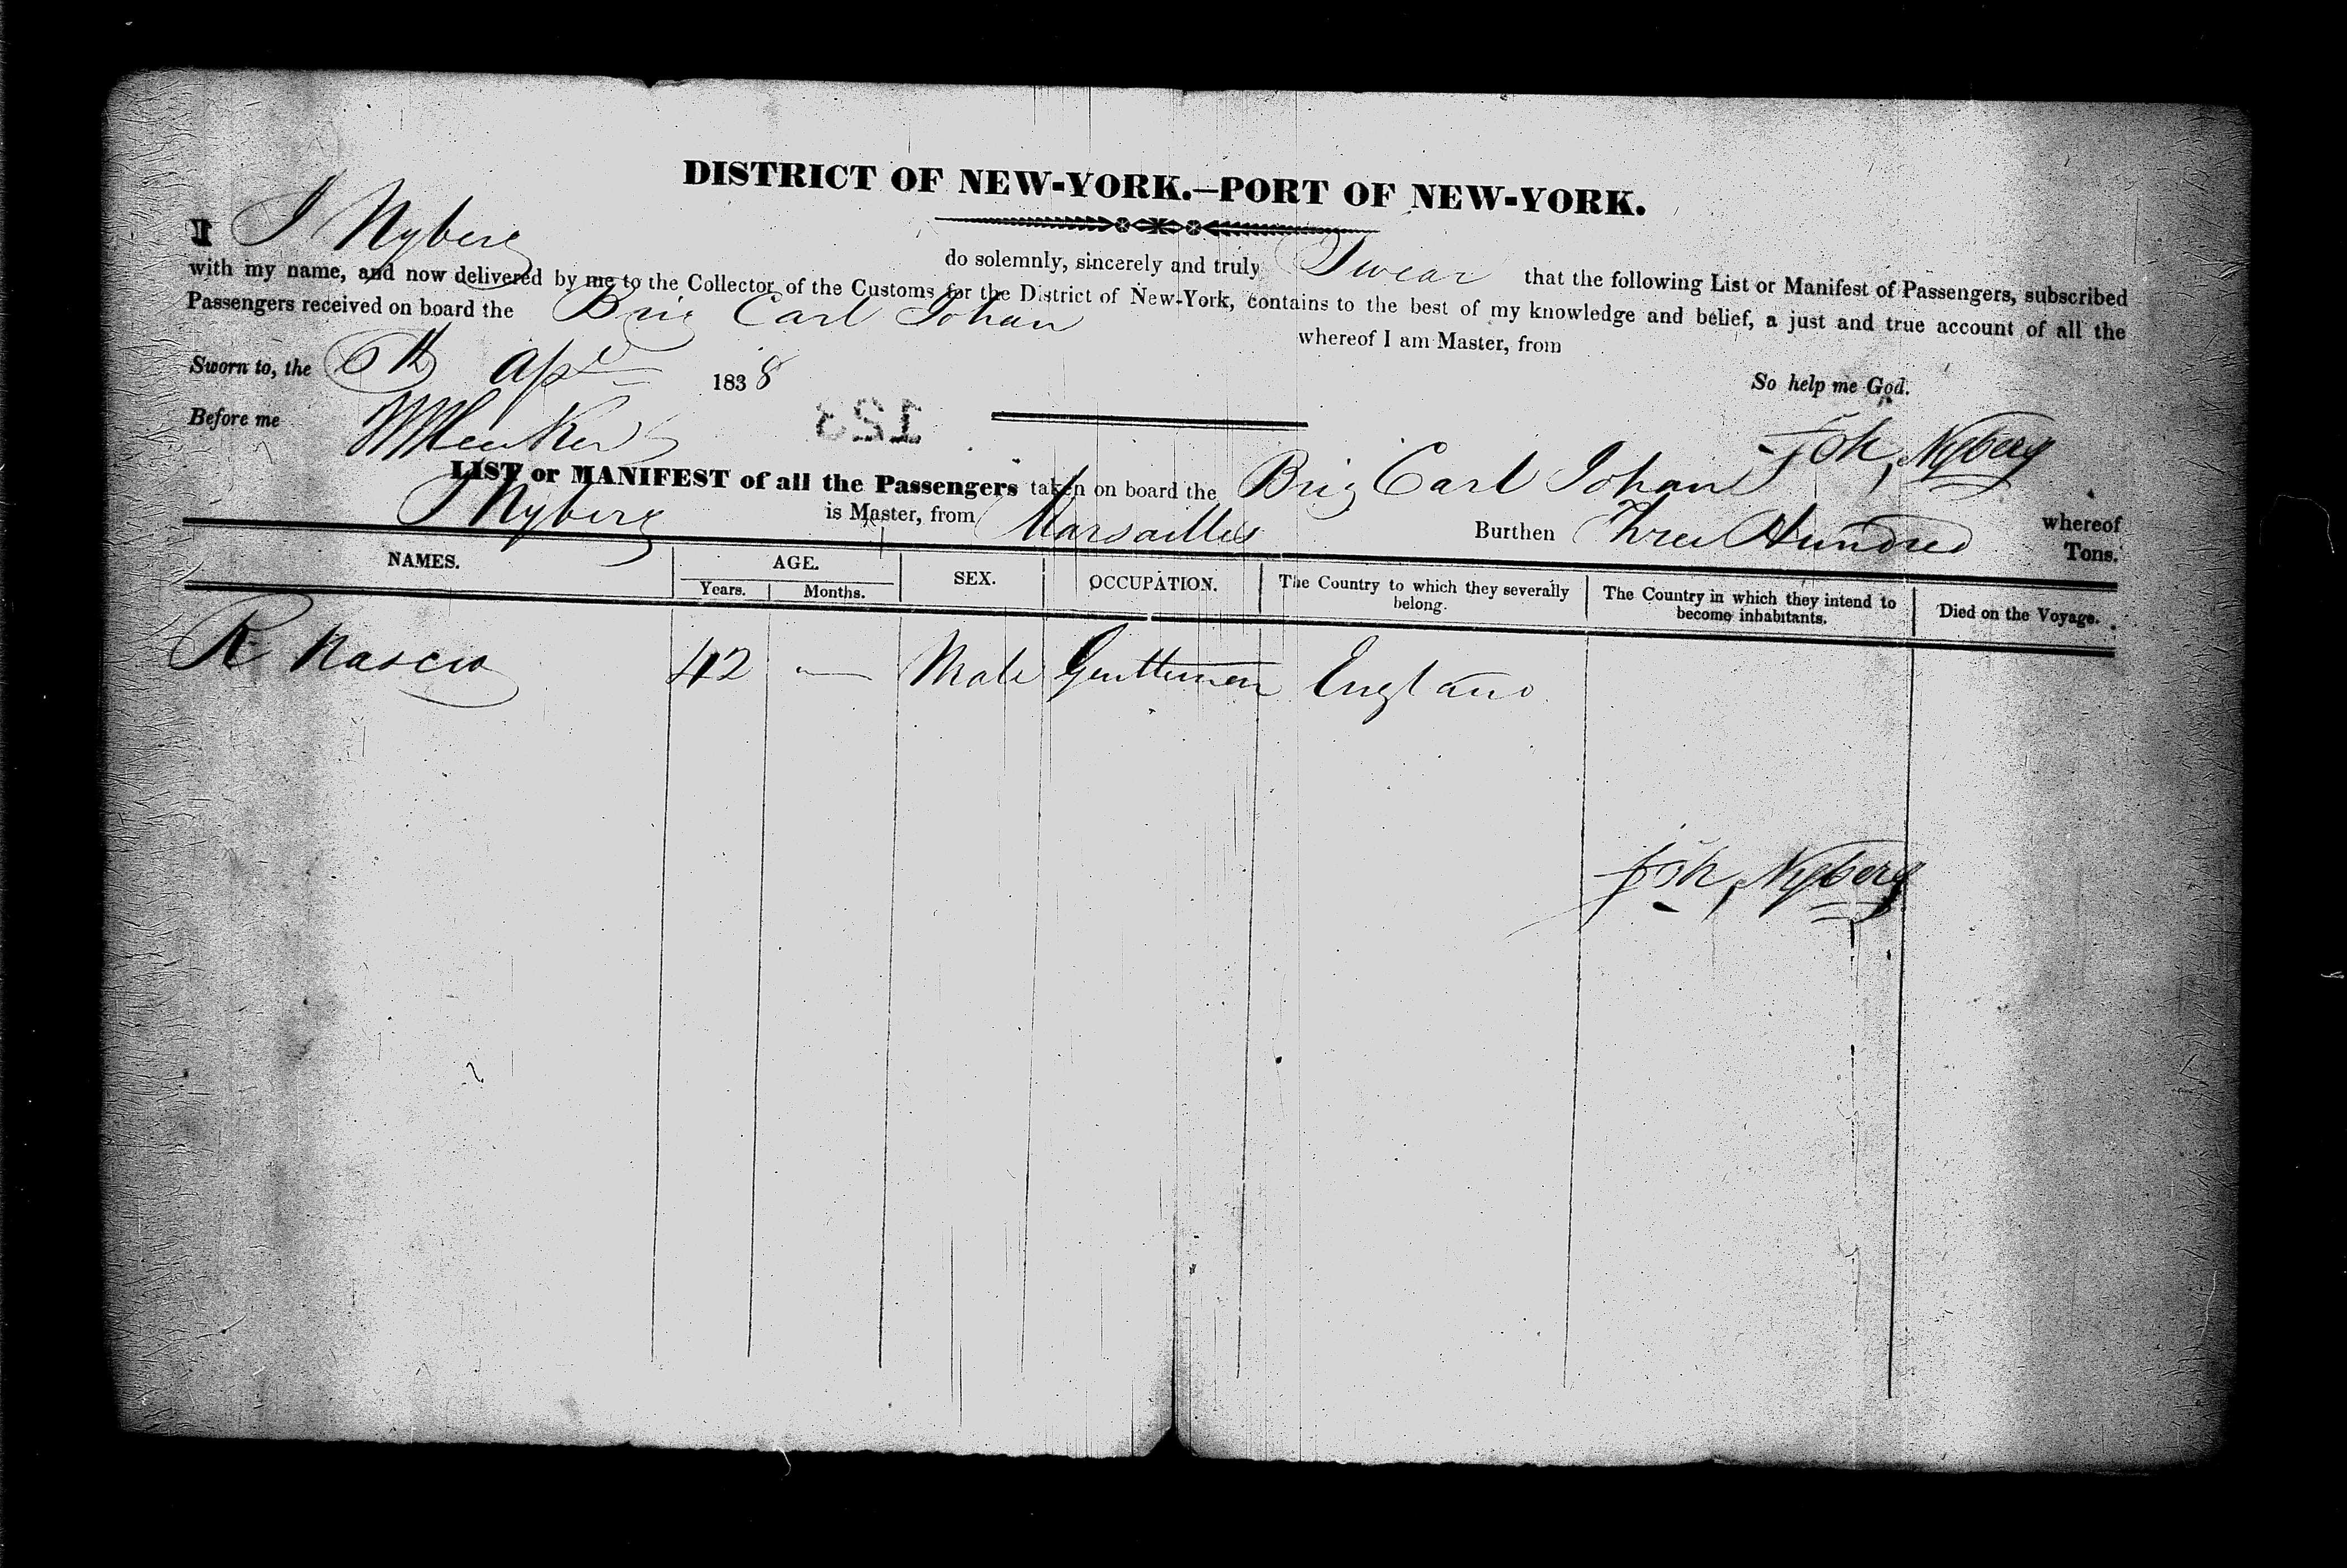 DISTRICT OF NEW-YORK.—PORT OF NEW-YORK.
I J Nyberg do solemnly, sincerely and truly Swear that the following List or Manifest of Passengers, subscribed
with my name, and now delivered by me to the Collector of the Customs for the District of New-York, contains to the best of my knowledge and belief, a just and true account of all the
Passengers received on board the Brig Carl Johan whereof I am Master, from
So help me God.
Sworn to, the 6th Apl 1838
Before me
123
Joh, Nyberg
LIST or MANIFEST of all the Passengers taken on board the Brig Carl Johan whereof
J Nyberg is Master, from Marsailles Burthen Three Hundred Tons.
NAMES. AGE. SEX. OCCUPATION. The Country to which they severally belong. The Country in which they intend to become inhabitants. Died on the Voyage.
Years. Months.
R Nascio 42 — Male Gentleman England
Joh, Nyberg